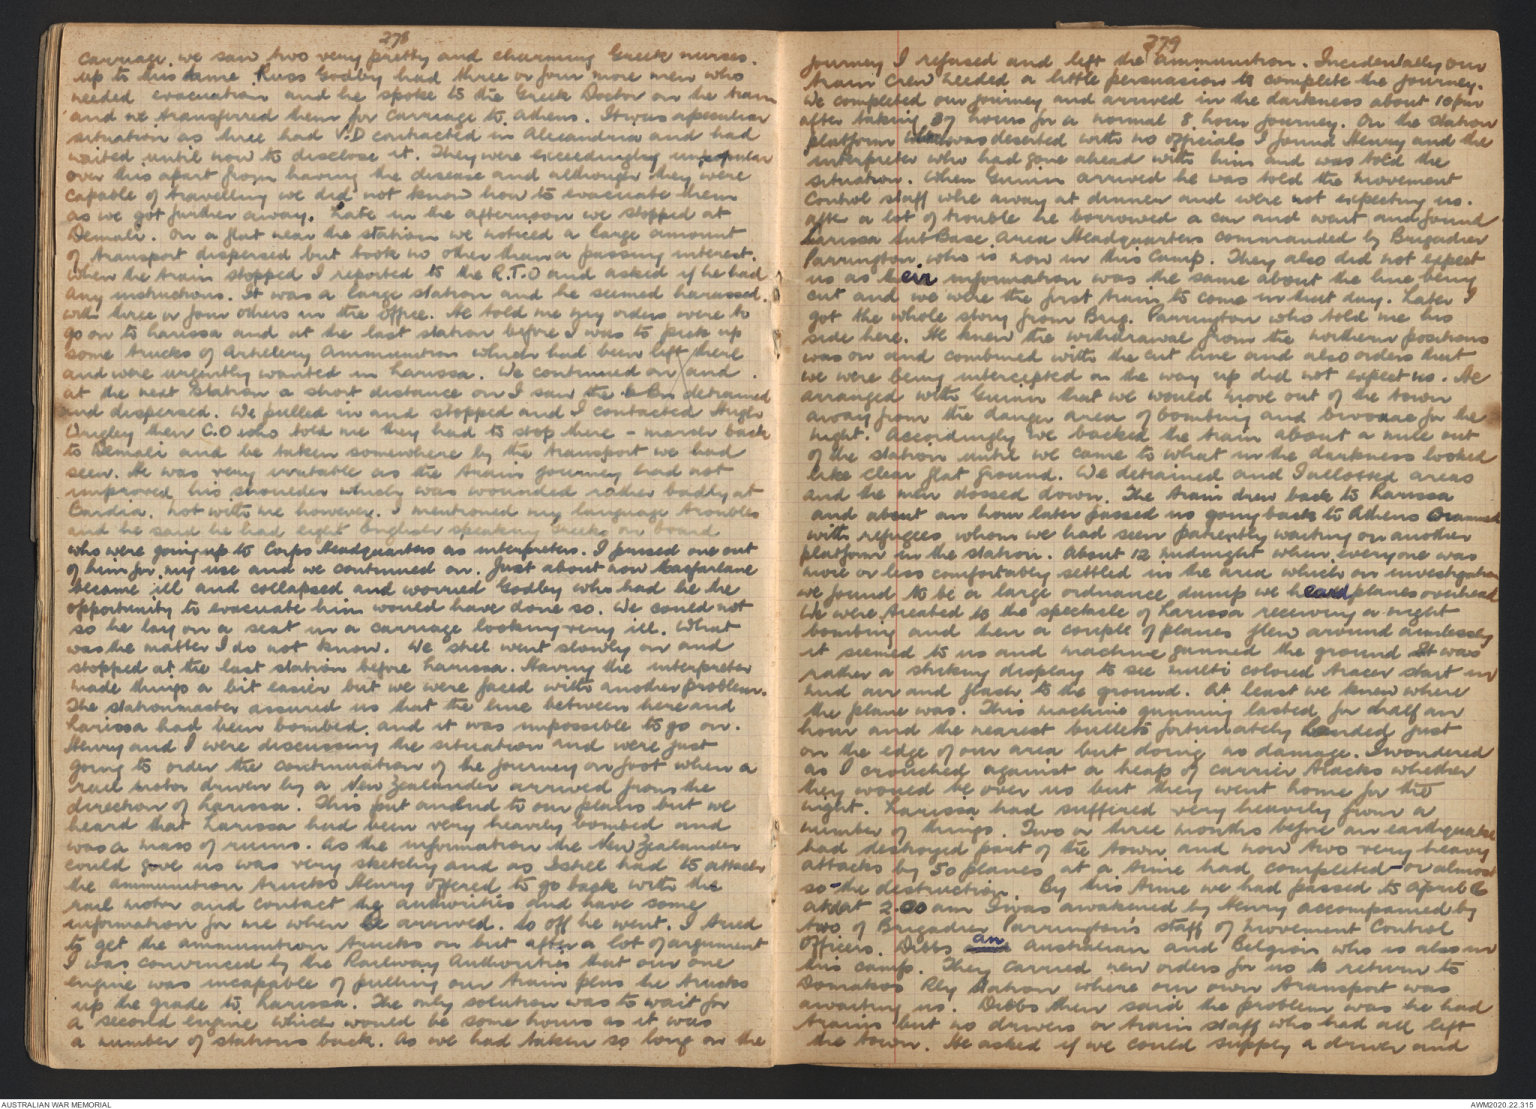 278
carriage. we saw two very pretty and charming Greek nurses.
up to this time Russ Godby had three or four more men who
needed evacuation and he spoke to the Greek Doctor on the train
and we transferred them for carriage to Athens. It was a peculiar
situation as three had V.D contracted in Alexandria and had
waited until now to disclose it. They were exceedingly unpopular
over this apart from having the disease and although they were
capable of travelling we did not know how to evacuate them
as we got further away. Late in the afternoon we stopped at
Demali. On a flat near the station we noticed a large amount
of transport dispersed but took no other than a passing interest.
When the train stopped I reported to the R.T.O and asked if he had
any instructions. It was a large station and he seemed harassed.
with three or four others in the office. He told me my orders were to
go on to Larissa and at the last station before I was to pick up
some trucks of Artillery Ammunition which had been left there
and were urgently wanted in Larissa. We continued on and
at the next station a short distance on I saw the Bn detrained
and dispersed. We pulled in and stopped and I contacted Hugh
Wrigley their C.O who told me they had to stop there - march back
to Demali and be taken somewhere by the transport we had
seen. He was very irritable as the train journey had not
improved his shoulder which was wounded rather badly at
Bardia. Not with me however. I mentioned my language troubles
and he said he had eight English speaking Greeks on board
who were going up to Corps Headquarters as interpreters. I passed one out
of him for my use and we continued on. Just about now Macfarlane
became ill and collapsed and worried Godby who had he the
opportunity to evacuate him would have done so. We could not
so he lay on a seat in a carriage looking very ill. What
was the matter I do not know. We still went slowly on and
stopped at the last station before Larissa. Having the interpreter
made things a bit easier but we were faced with another problem.
The stationmaster assured us that the line between here and
Larissa had been bombed and it was impossible to go on.
Henry and I were discussing the situation and were just
going to order the continuation of the journey on foot when a
rail motor driven by a New Zealander arrived from the
direction of Larissa. This put an end to our plans but we
heard that Larissa had been very heavily bombed and
was a mass of ruins. As the information the New Zealander
could give us was very sketchy and as I still had to attach
the ammunition trucks Henry offered to go back with the
rail motor and contact the authorities and have some
information for me when I arrived. So off he went. I tried
to get the ammunition trucks on but after a lot of argument
I was convinced by the Railway Authorities that our one
engine was incapable of pulling our train plus the trucks
up the grade to Larissa. The only solution was to wait for
a second engine which would be some hours as it was
a number of stations back. As we had taken so long on the
279
journey I refused and left the ammunition. Incidentally our
train crew needed a little persuasion to complete the journey.
We completed our journey and arrived in the darkness about 10 pm
after taking 37 hours for a normal 8 hour journey. On the station
platform which was deserted with no officials I found Henry and the
interpreter who had gone ahead with him and was told the
situation. When Guinn arrived he was told the Movement
Control staff were away at dinner and were not expecting us.
After a lot of trouble he borrowed a car and went and found
Larissa Sub Base Area Headquarters commanded by Brigadier
Parrington who is now in this camp. They also did not expect
us as their information was the same about the line being
cut and we were the first train to come in that day. Later I
got the whole story from Brig. Parrington who told me his
side here. He knew the withdrawal from the northern positions
was on and combined with the cut line and also orders that
we were being intercepted on the way up did not expect us. He
arranged with Guinn that we would move out of the town
away from the danger area of bombing and bivouac for the
night. Accordingly we backed the train about a mile out
of the station until we came to what in the darkness looked
like clear flat ground. We detrained and I allotted areas
and the men dossed down. The train drew back to Larissa
and about an hour later passed us going back to Athens crammed
with refugees whom we had seen patiently waiting on another
platform in the station. About 12 midnight when everyone was
more or less comfortably settled in the area which on investigation
we found to be a large ordnance dump we heard planes overhead
We were treated to the spectacle of Larissa receiving a night
bombing and then a couple of planes flew around aimlessly
it seemed to us and machine gunned the ground It was
rather a striking display to see multi colored tracer start in
mid air and flash to the ground. At least we knew where
the plane was. This machine gunning lasted for half an
hour and the nearest bullets fortunately landed just
on the edge of our area but doing no damage. I wondered
as I crouched against a heap of carrier tracks whether
they would be over us but they went home for the
night. Larissa had suffered very heavily from a
number of things. Two or three months before an earthquake
had destroyed part of the town and now two very heavy
attacks by 50 planes at a time had completed - or almost
so - the destruction. By this time we had passed to April 16
and at 2.00 am I was awakened by Henry accompanied by
two of Brigadier Parrington's staff of Movement Control
Officers. Dibbs an Australian and Belgion who is also in
this camp. They carried new orders for us to return to
Domokos Rly Station where our own transport was
awaiting us. Dibbs then said the problem was he had
trains but no drivers or train staff who had all left
the town. He asked if we could supply a driver and
AUSTRALIAN WAR MEMORIAL
AWM2020.22.315